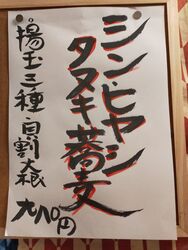 シン・ヒヤシ
タヌキ蕎麦
揚玉三種・貝割大根 九八〇円